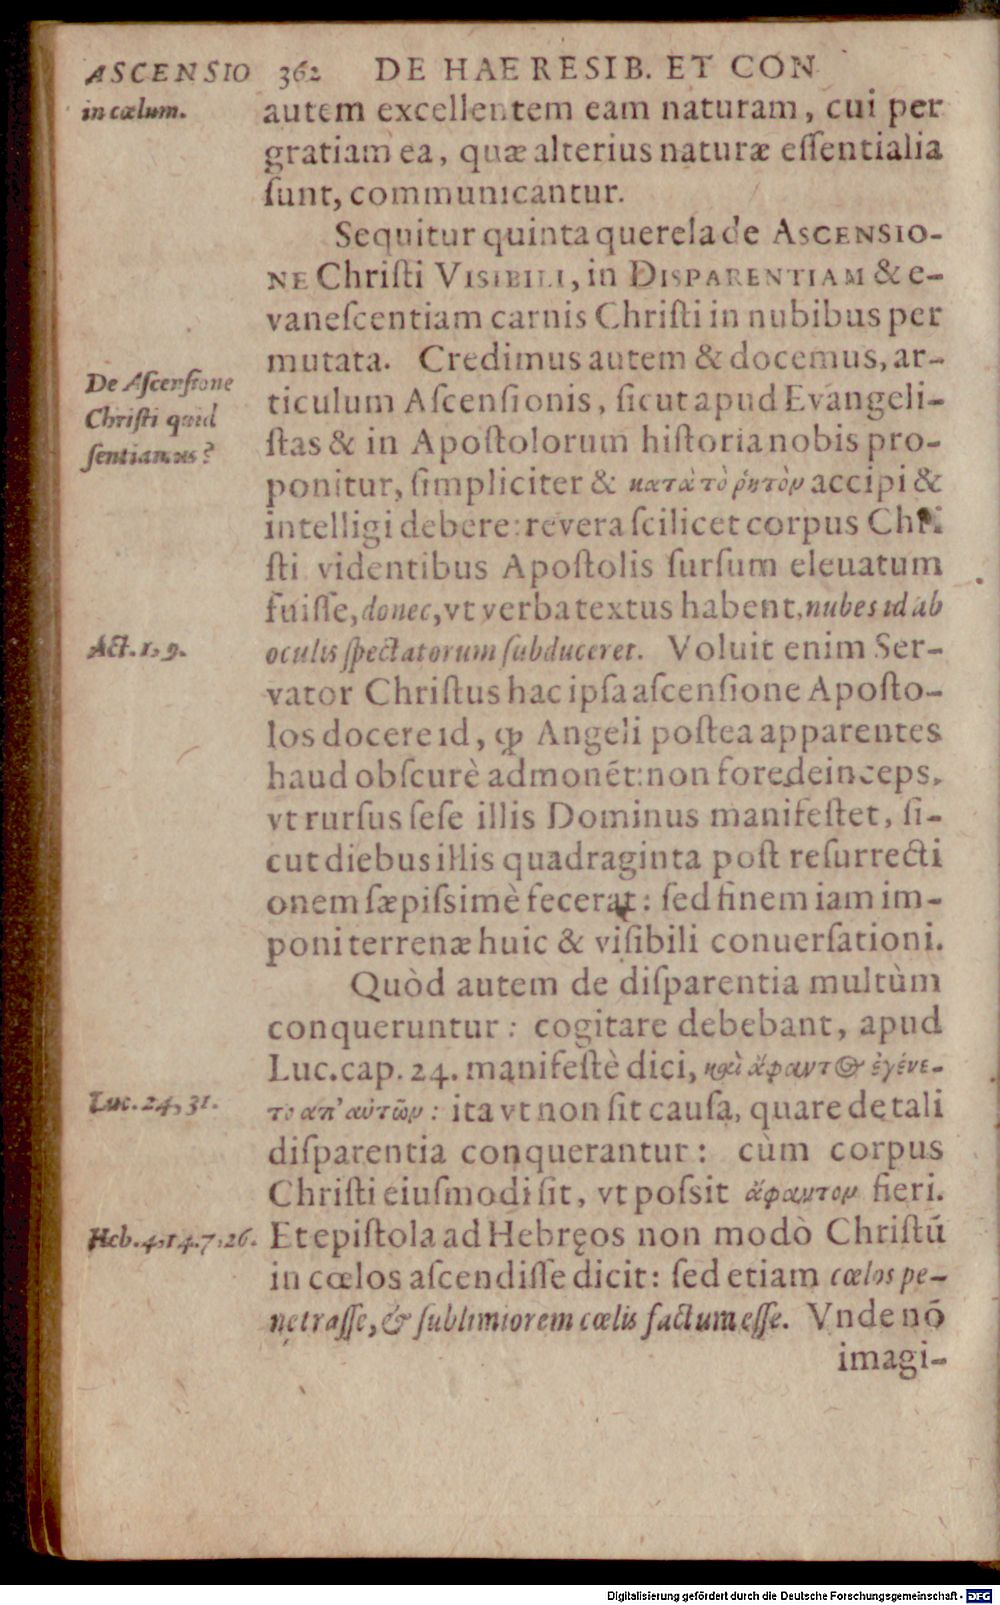 ASCENSIO 362 DE HAERESIB. ET CON
in cœlum.
autem excellentem eam naturam, cui per
gratiam ea, quæ alterius naturæ eſſentialia
ſunt, communicantur.
Sequitur quinta querela de ASCENSIO-
NE Chriſti VISIBILI, in DISPARENTIAM & e-
vaneſcentiam carnis Chriſti in nubibus per
mutata. Credimus autem & docemus, ar-
De Aſcenſione
Chriſti quid
ſentiamus?
ticulum Aſcenſionis, ſicut apud Evangeli-
ſtas & in Apoſtolorum hiſtoria nobis pro-
ponitur, ſimpliciter & κατὰ τὸ ῥητὸν accipi &
intelligi debere: revera ſcilicet corpus Chri
ſti videntibus Apoſtolis ſurſum eleuatum
fuiſſe, donec, vt verba textus habent, nubes id ab
Act. 1, 9.
oculis ſpectatorum ſubduceret. Voluit enim Ser-
vator Chriſtus hac ipſa aſcenſione Apoſto-
los docere id, ꝙ Angeli poſtea apparentes
haud obſcurè admonẽt: non fore deinceps,
vt rurſus ſeſe illis Dominus manifeſtet, ſi-
cut diebus illis quadraginta poſt reſurrecti
onem ſæpiſsimè fecerat: ſed finem iam im-
poni terrenæ huic & viſibili conuerſationi.
Quòd autem de diſparentia multùm
conqueruntur: cogitare debebant, apud
Luc. cap. 24. manifeſtè dici, καὶ ἄφαντος ἐγένε-
Luc. 24, 31.
το απ' αὐτῶν: ita vt non ſit cauſa, quare de tali
diſparentia conquerantur: cùm corpus
Chriſti eiuſmodi ſit, vt poſsit ἄφαντον fieri.
Heb. 4, 14. 7, 26.
Et epiſtola ad Hebręos non modò Chriſtũ
in cœlos aſcendiſſe dicit: ſed etiam cœlos pe-
netraſſe, & ſublimiorem cœlis factum eſſe. Vnde nõ
imagi-
Digitalisierung gefördert durch die Deutsche Forschungsgemeinschaft - DFG